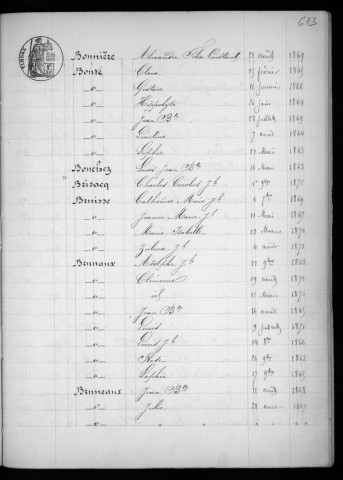 613
TIMBRE
Bonnière Alexandre 29 août 1869
Bonté Clara 25 février 1865
-d°- Gustave 11 janvier 1866
-d°- Hippolyte 20 juin 1869
-d°- Jean Bte 18 juillet 1869
-d°- 7 août 1864
-d°- Sophie 22 Mai 1863
Louis Jean Bte 16 Mars 1863
Brisacq Charles Carolus Jh 5 9bre 1872
Buisse Catherine Marie Jh 1869
-d°- Jeanne Marie Jh 11 Mai 1867
-d°- Marie Isabelle 28 Mars 1870
-d°- Zulma Jh 4 août 1871
Brunaux Adolphe Jh 22 9bre 1862
-d°- Clémence 19 août 1872
-d°- id 12 Mars 1870
-d°- Jean Bte 16 août 1865
-d°- Louis 9 juillet 1871
-d°- Louis Jh 14 8bre 1866
-d°- Rose 24 9bre 1862
-d°- Sophie 17 9bre 1865
Bruneaux Jean Bte 12 août 1868
-d°- Julie 28 1867